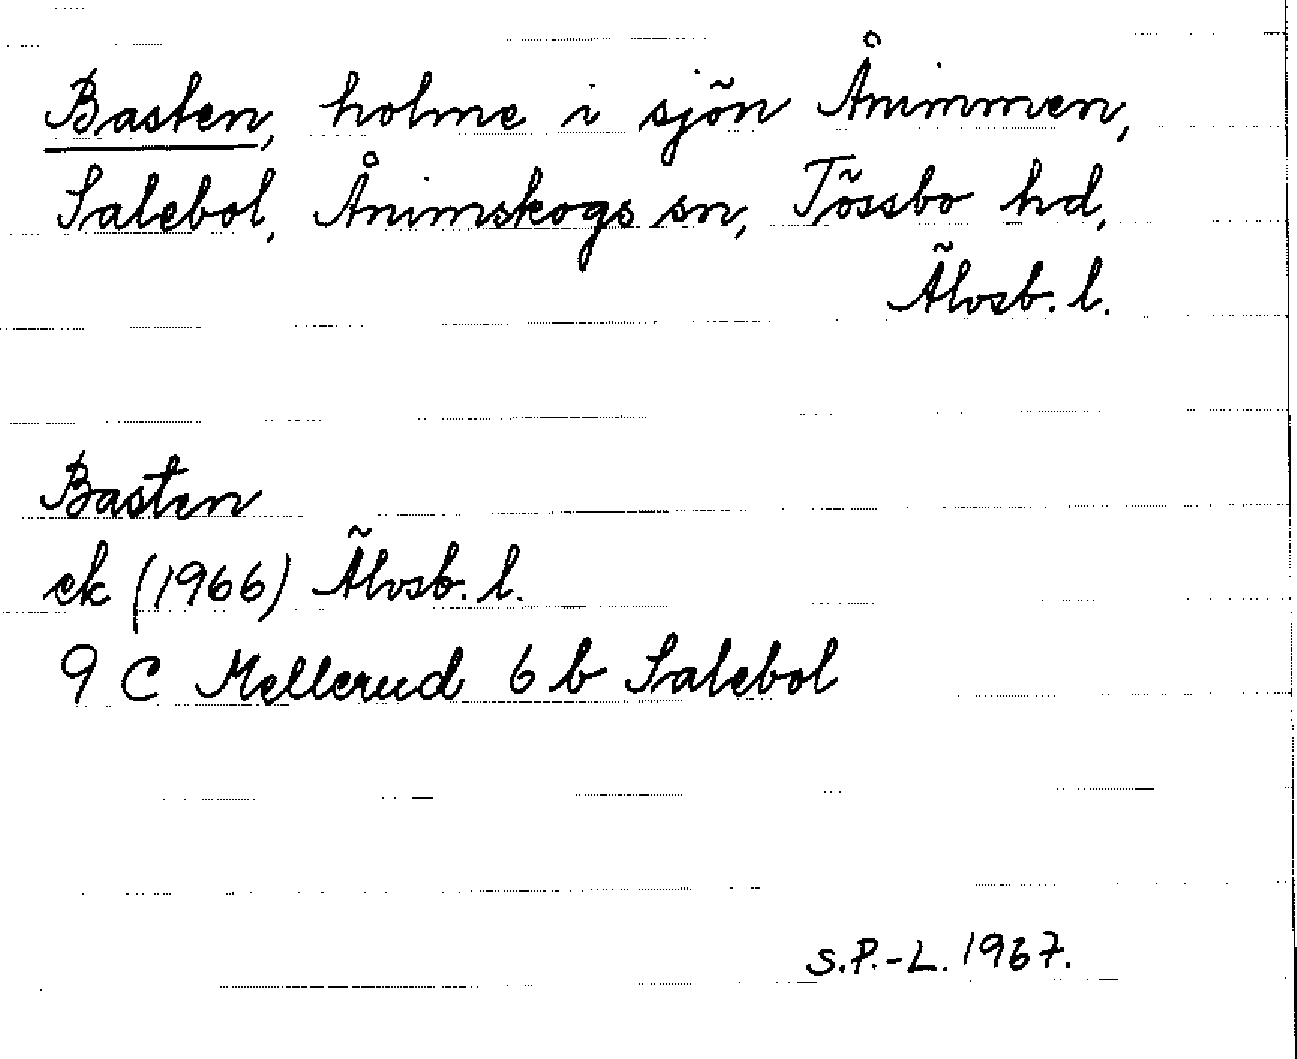 Basten, holme i sjön Ånimmen,
Salebol, Ånimskogs sn, Tössbo hd,
Älvsb. l.
Basten
ek (1966) Älvsb. l.
9 C Mellerud 6 b Salebol
S.P.-L. 1967.